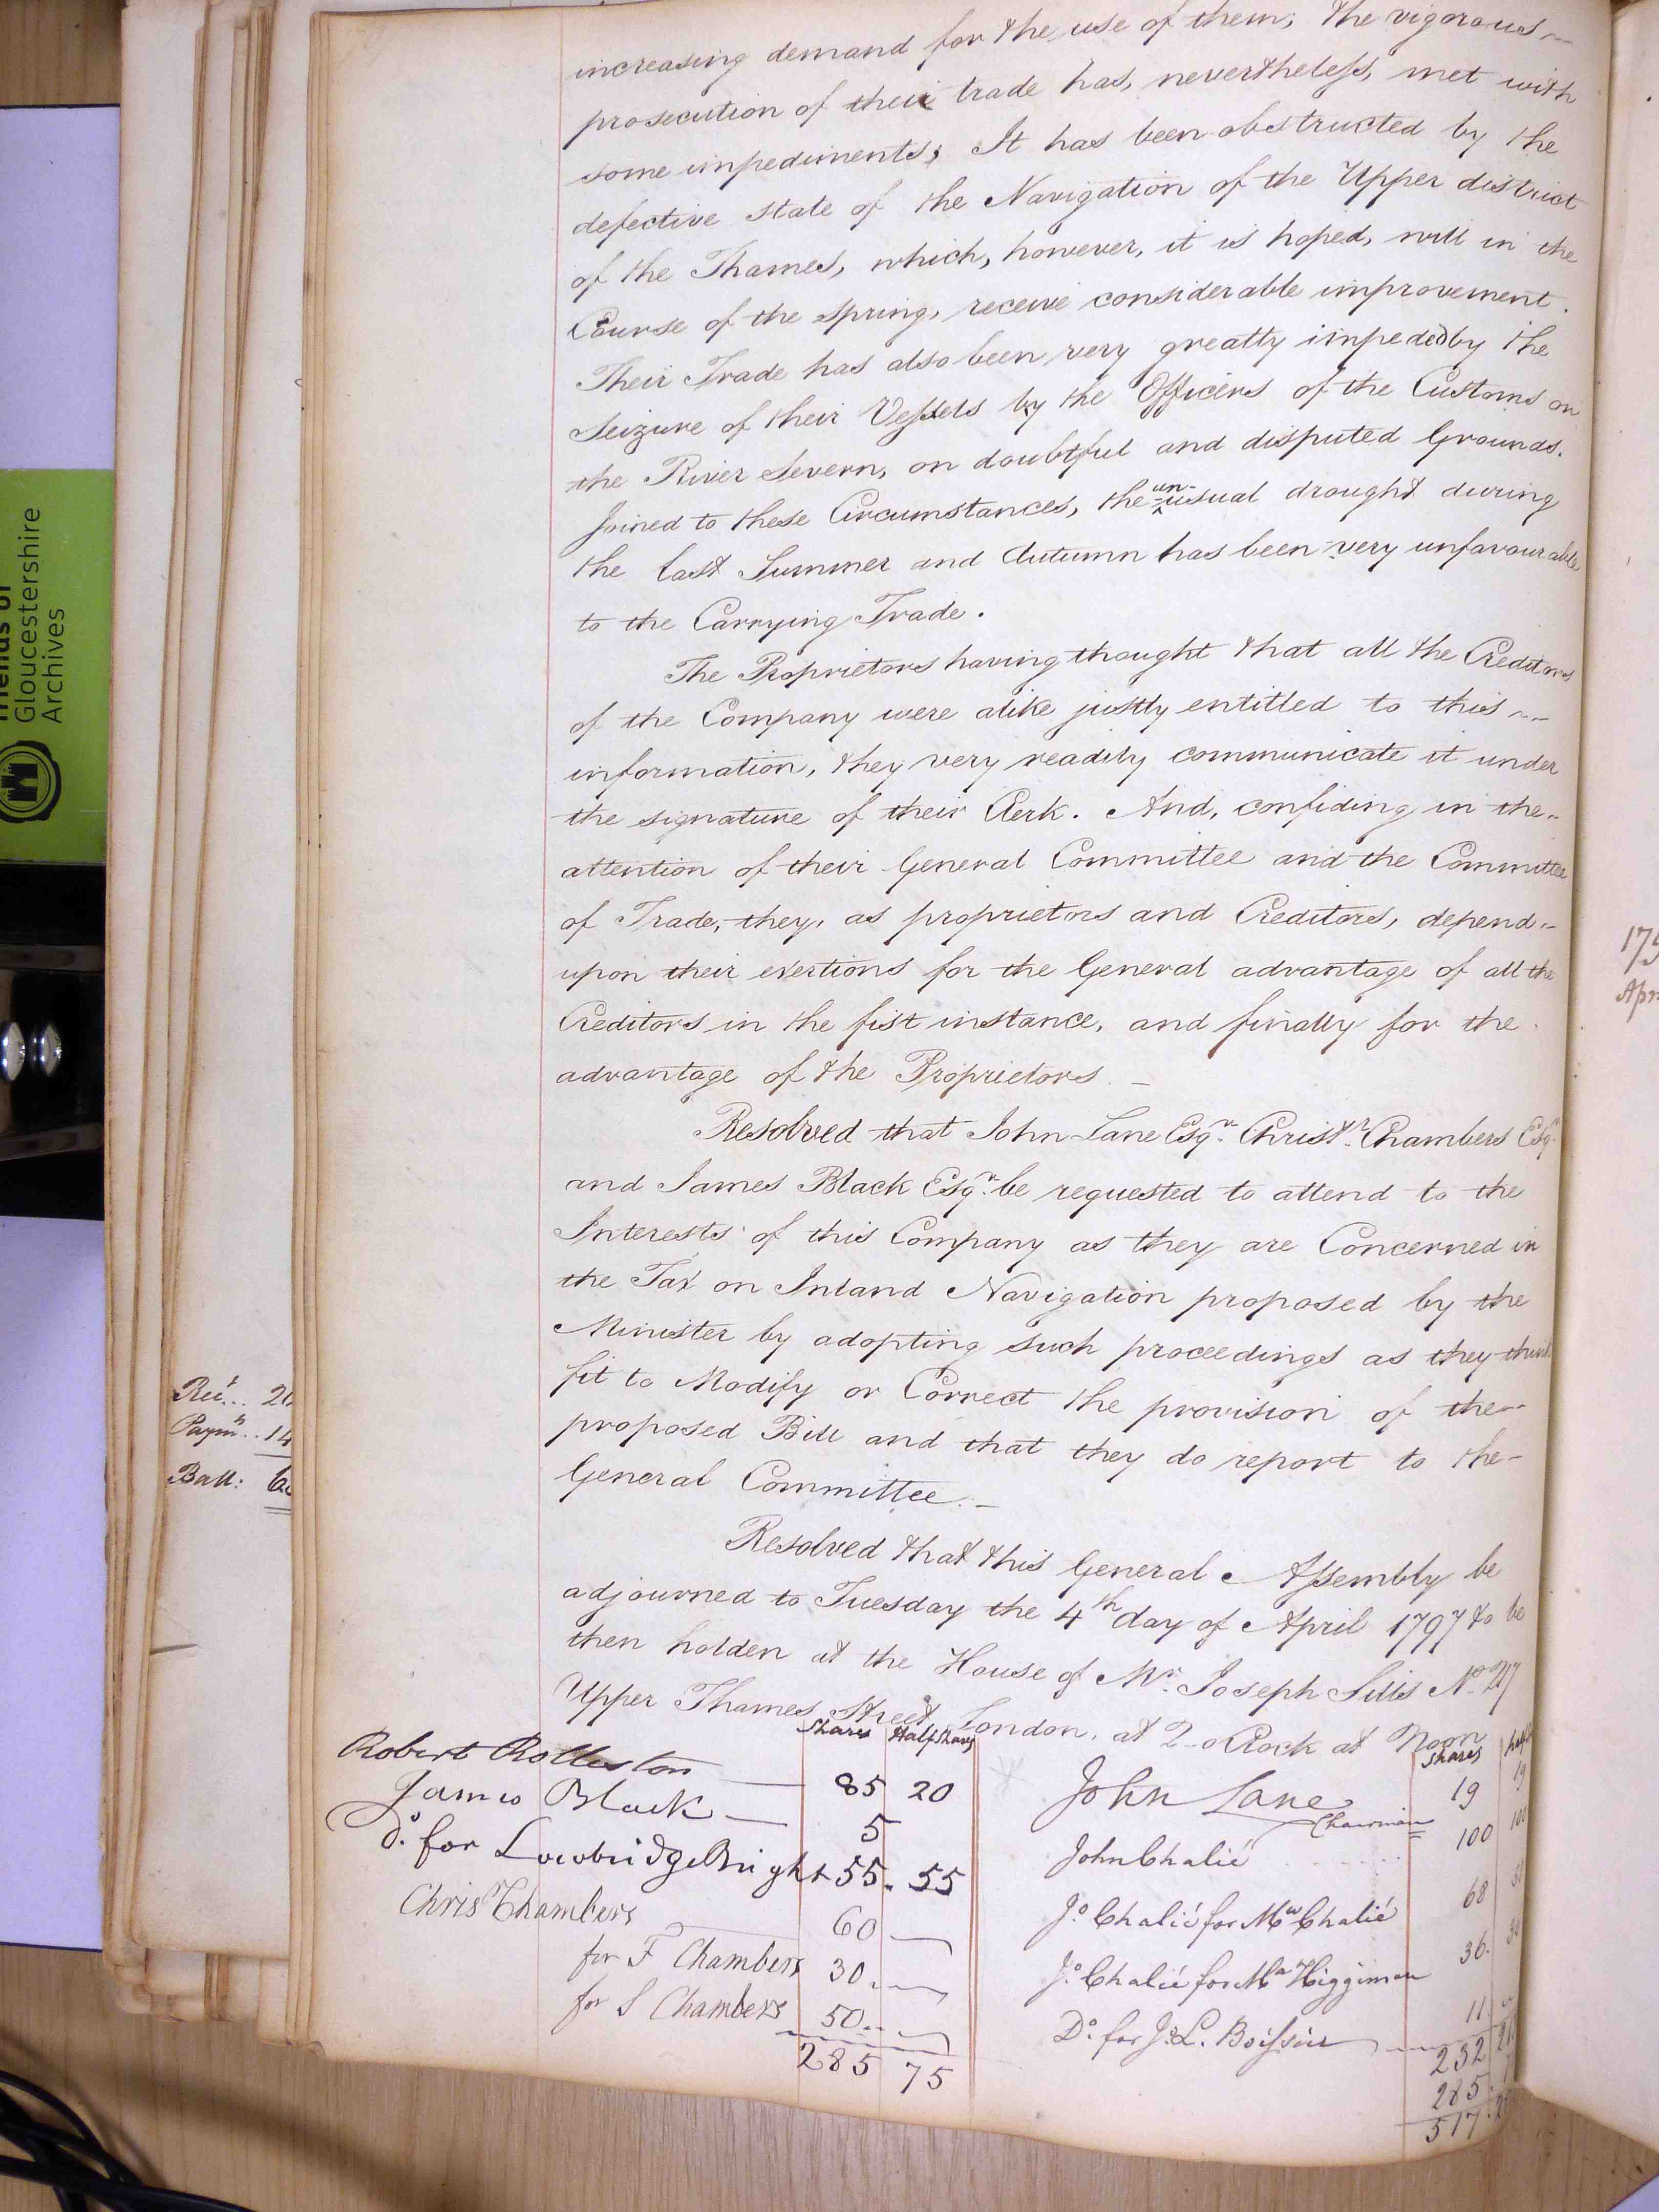 increasing demand for the use of them; the vigorous
prosecution of their trade has, nevertheless, met with
some impediments; It has been obstructed by the
defective state of the Navigation of the Upper district
of the Thames, which, however, it is hoped, will in the
Course of the Spring, receive considerable improvement.
Their Trade has also been very greatly impeded by the
Seizure of their Vessels by the Officers of the Customs on
the River Severn, on doubtful and disputed Grounds.
Joined to these Circumstances, the un-usual drought during
the last Summer and Autumn has been very unfavourable
to the Carrying Trade.
The Proprietors having thought that all the Creditors
of the Company were alike justly entitled to this
information, they very readily communicate it under
the signature of their Clerk. And, confiding in the
attention of their General Committee and the Committee
of Trade, they, as proprietors and Creditors, depend
upon their exertions for the General advantage of all the
Creditors in the fist instance, and finally for the
advantage of the Proprietors. –
Resolved that John Lane Esqr. Christr. Chambers Esqr.
and James Black Esqr. be requested to attend to the
Interests of this Company as they are Concerned in
the Tax on Inland Navigation proposed by the
Minister by adopting such proceedings as they think
fit to Modify or Correct the provision of the
proposed Bill and that they do report to the
General Committee. –
Resolved that this General Assembly be
adjourned to Tuesday the 4th day of April 1797 to be
then holden at the House of Mr. Joseph Sills No. 217
Upper Thames Street London, at 2 o Clock at Noon
Shares Half Shares
Robert Rolleston 85 20
James Black 5
Do. for Lowbridge Bright 55 55
Chris Chambers 60
for F Chambers 30
for S Chambers 50
285 75
Shares
John Lane 19 19
Chairman
John Chalié 100 100
Jo. Chalié for Mw Chalié 68
Jo. Chalié for Ma Higginson 36
Do. for J. L. Boissier 11
232
285
517
Rect... 2
Paymts.. 14
Ball: 6
Gloucestershire
Archives
175
Apr